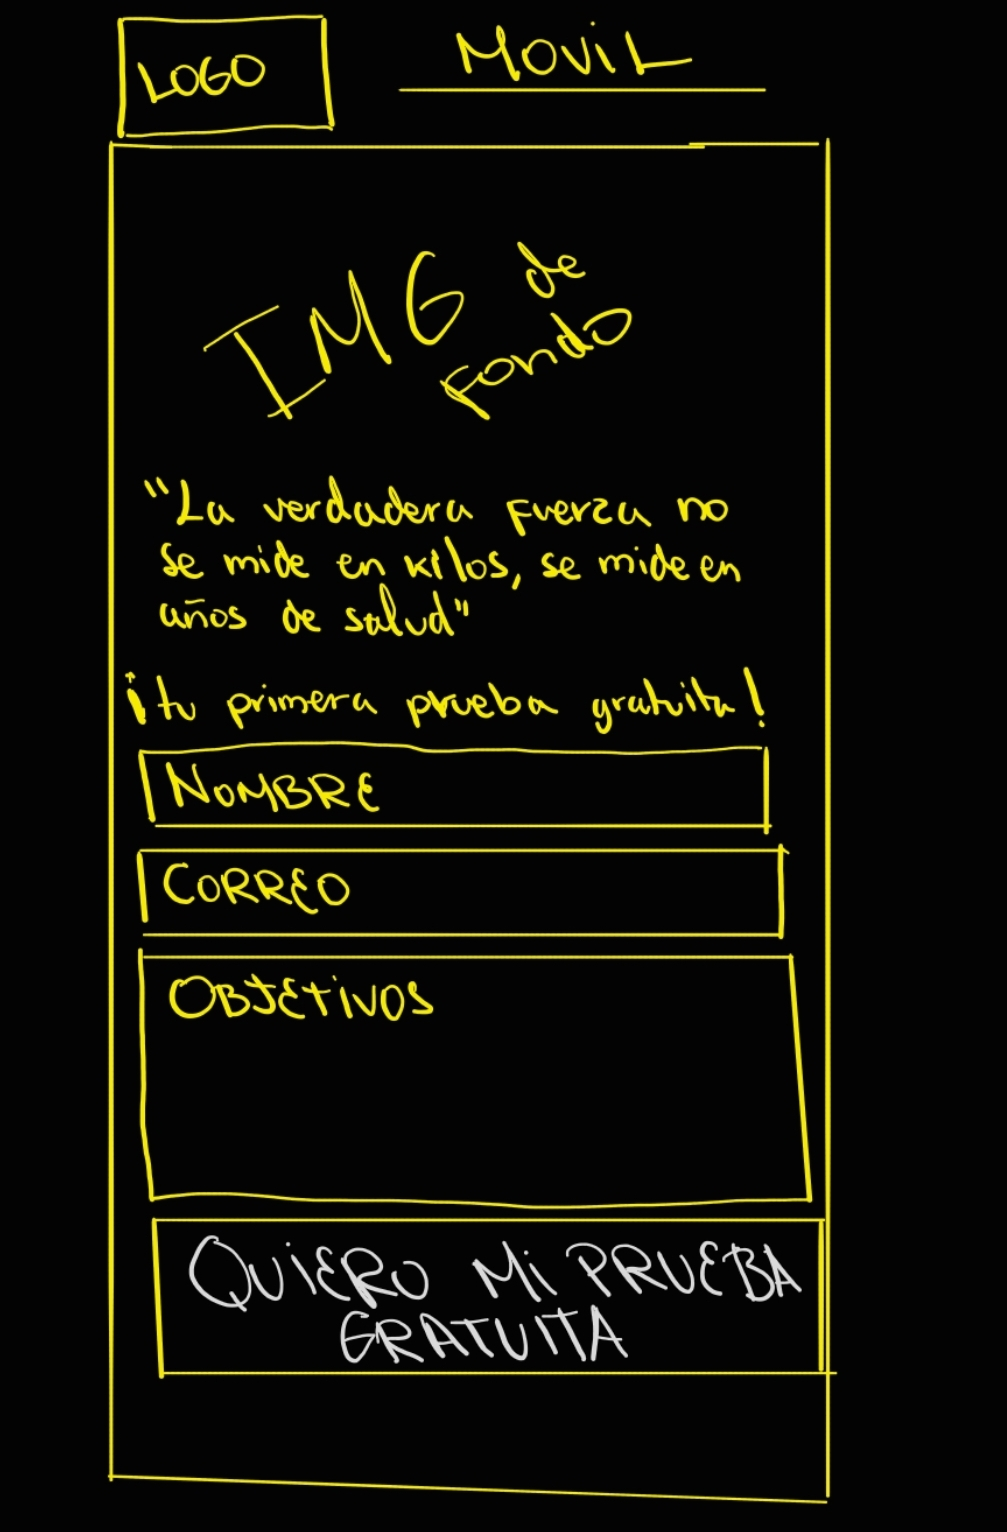 LOGO
MOViL
IMG de
fondo
"La verdadera fuerza no
se mide en kilos, se mide en
años de salud"
¡tu primera prueba gratuita!
NOMBRE
CORREO
OBJETiVOS
QUiERO Mi PRUEBA
GRATUITA